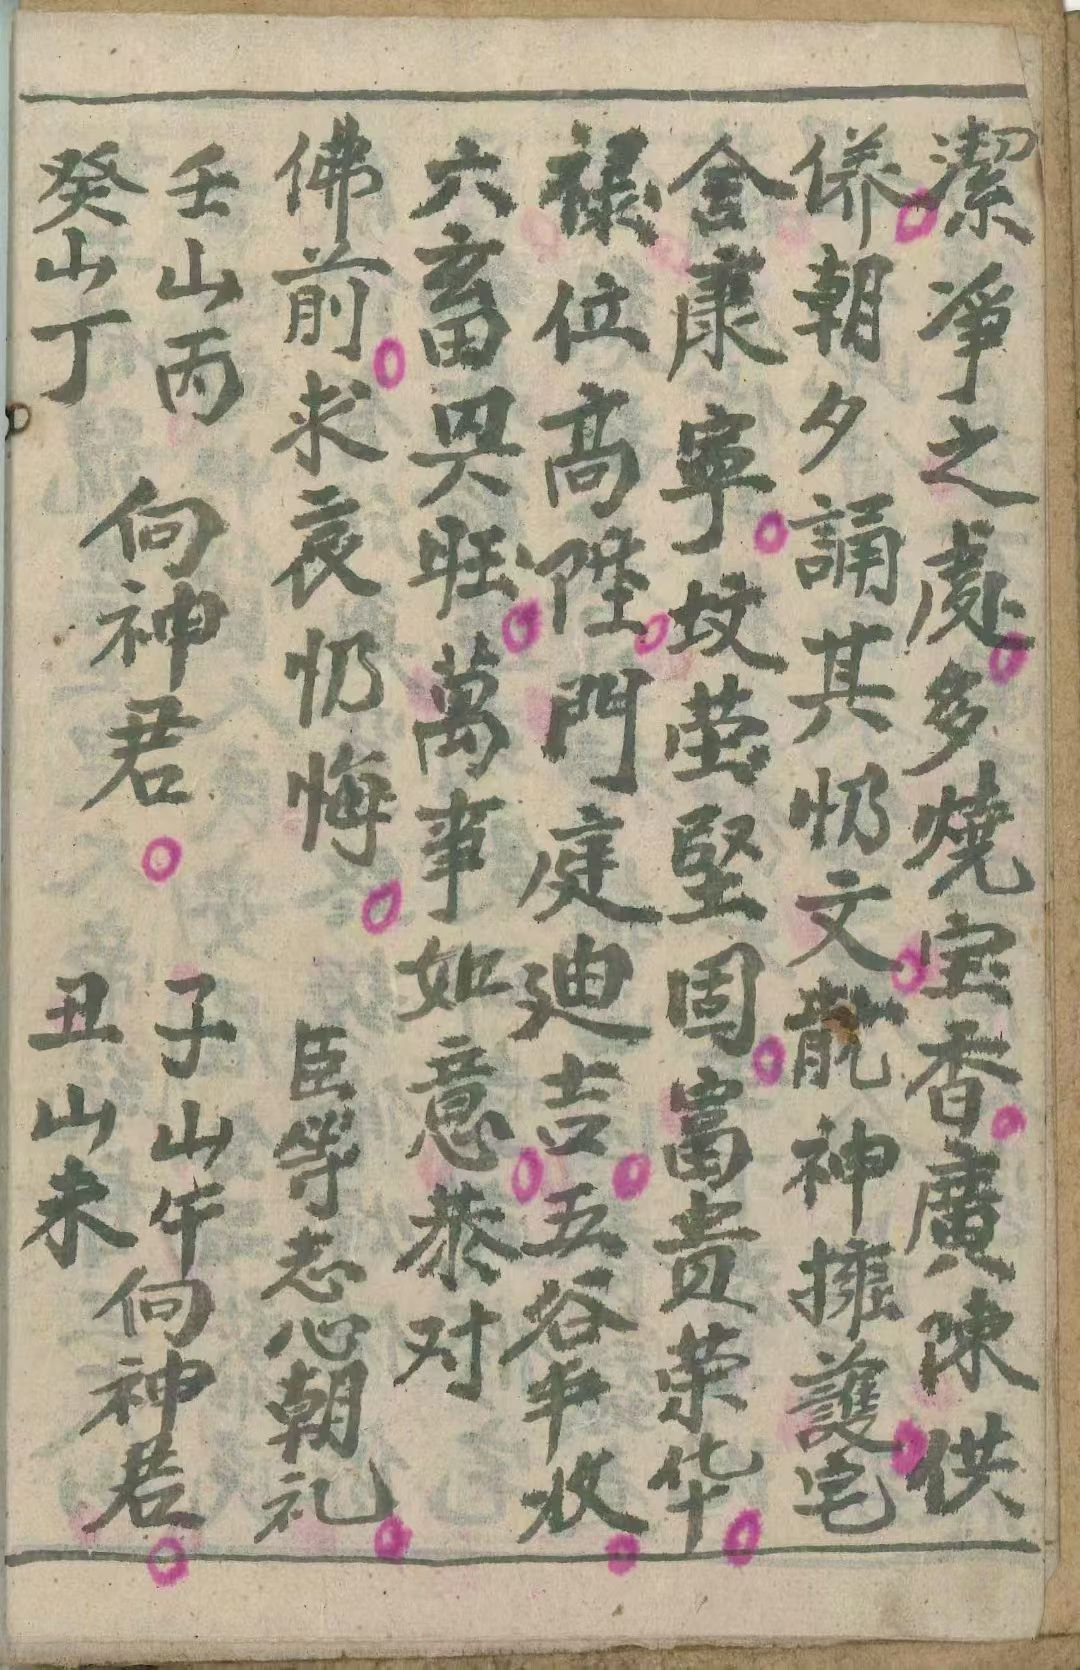 潔凈之處多燒宝香廣陳供
俻朝夕誦其忏文龍神擁護宅
舍康寧坟茔堅固富貴荣华
禄位高陞門庭迪吉五谷丰收
六畜兴旺萬事如意恭对
佛前求哀忏悔 臣等志心朝礼
壬山丙 子山午
向神君 向神君
癸山丁 丑山未